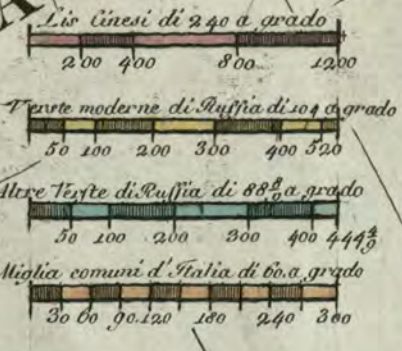 A
Lis Cinesi di 240 a grado
200 400 800 1200
Verste moderne di Russia di 104 a grado
50 100 200 300 400 520
Altre Verste di Russia di 88 8/9 a grado
50 100 200 300 400 444 4/9
Miglia comuni d'Italia di 60. a grado
30 60 90. 120 180 240 300